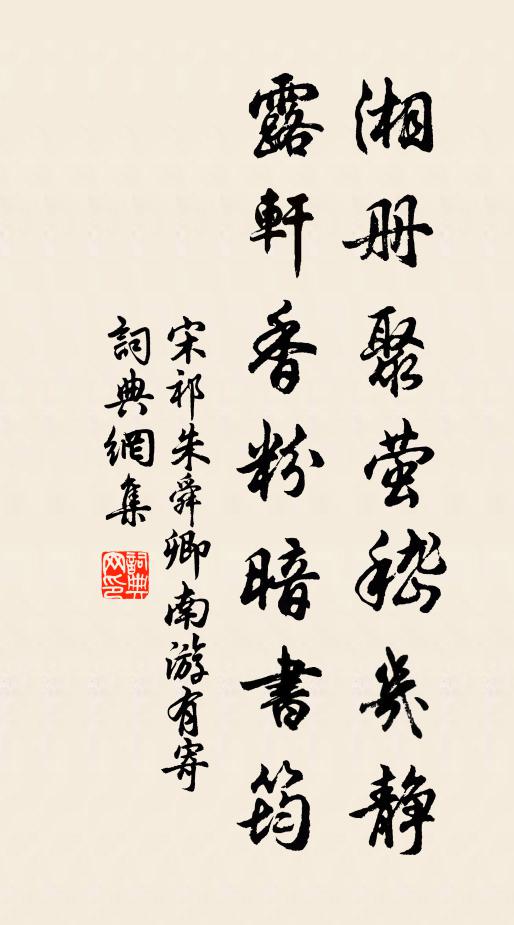 湘册聚萤嵇幾静
露軒香粉暗書筠
宋祁朱舜卿南游有寄
詞典網集
詞典网印